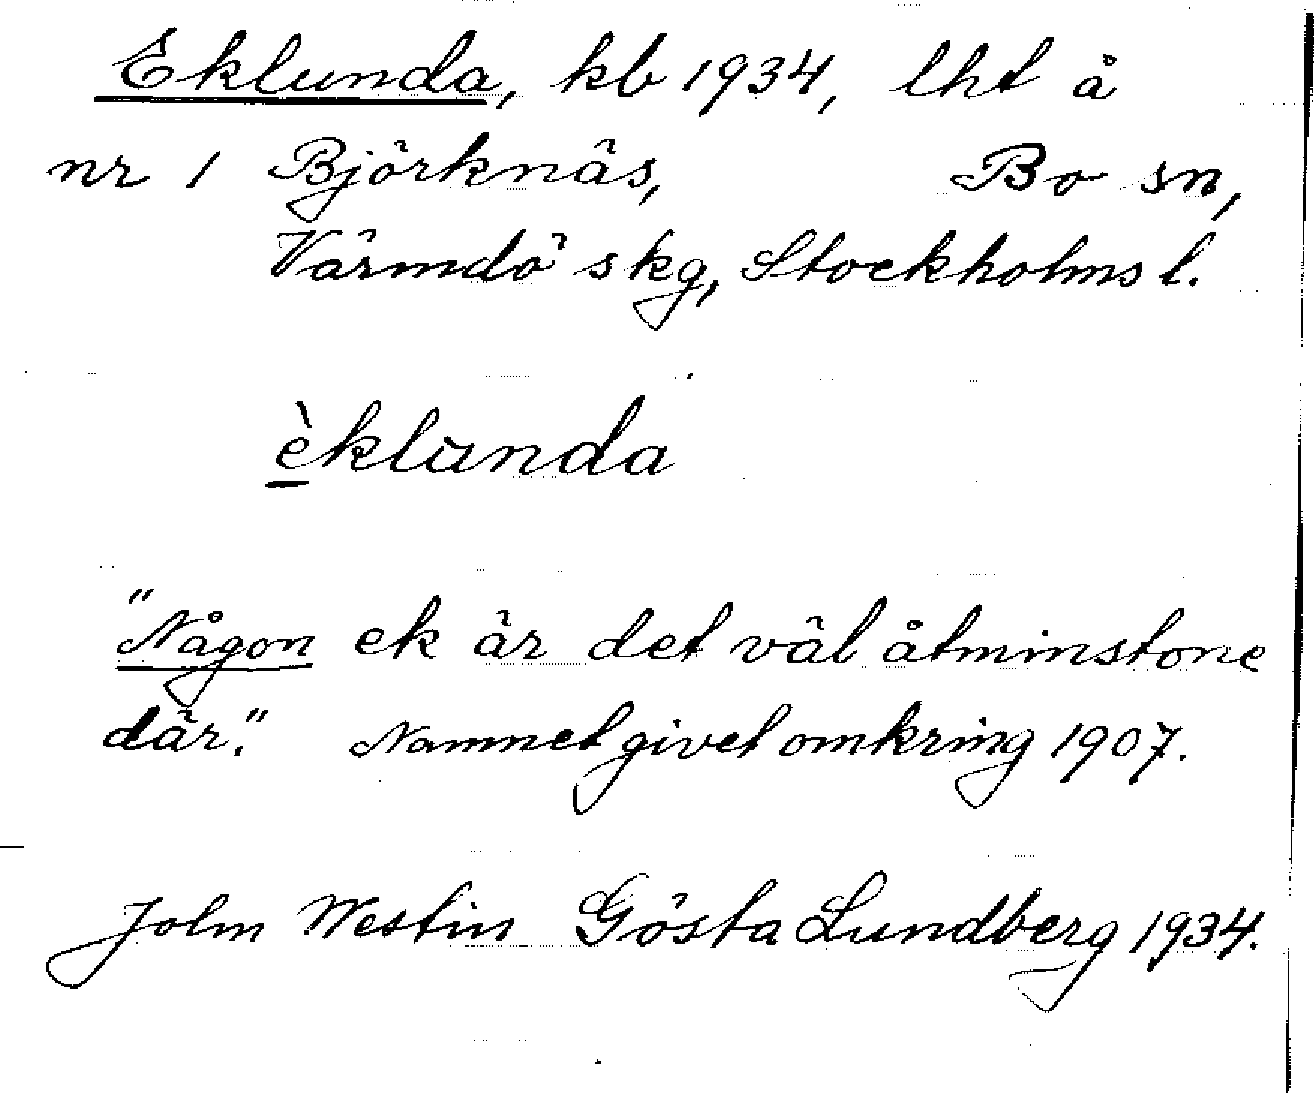 Eklunda, kb 1934, lht å
nr 1 Björknäs, Bo sn,
Värmdö skg, Stockholms l.
èklunda
"Någon ek är det väl åtminstone
där." Namnet givet omkring 1907.
John Westin Gösta Lundberg 1934.